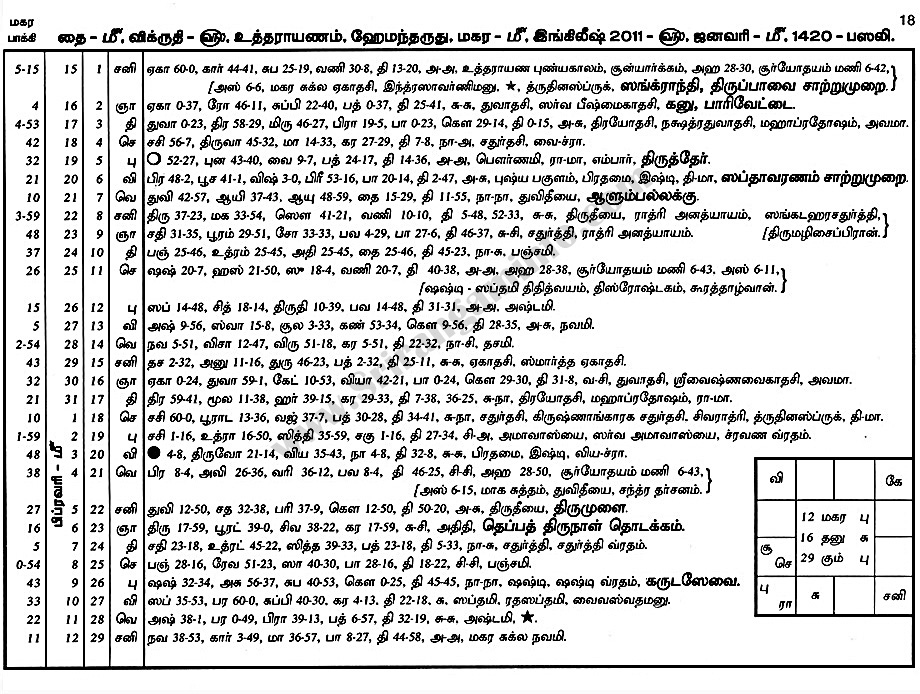 மகர 18
பாக்கி தை - மீ, விக்ருதி - ௵, உத்தராயணம், ஹேமந்தருது, மகர - மீ, இங்கிலீஷ் 2011 - ௵, ஜனவரி - மீ, 1420 - பஸலி.
5-15 15 1 சனி ஏகா 60-0, கார் 44-41, சுப 25-19, வணி 30-8, தி 13-20, அ-அ, உத்தராயண புண்யகாலம், சூன்யார்க்கம், அஹ 28-30, சூர்யோதயம் மணி 6-42,
[அஸ் 6-6, மகர சுக்ல ஏகாதசி, இந்த்ரஸாவர்ணிமனு, ★, த்ருதினஸ்ப்ருக், ஸங்க்ராந்தி, திருப்பாவை சாற்றுமுறை.
4 16 2 ஞா ஏகா 0-37, ரோ 46-11, சுப்பி 22-40, பத் 0-37, தி 25-41, சு-சு, துவாதசி, ஸர்வ பீஷ்மைகாதசி, கனு, பாரிவேட்டை.
4-53 17 3 தி துவா 0-23, திர 58-29, மிரு 46-27, பிரா 19-5, பா 0-23, கௌ 29-14, தி 0-15, அ-சு, திரயோதசி, நக்ஷத்ரதுவாதசி, மஹாப்ரதோஷம், அவமா.
42 18 4 செ சசி 56-7, திருவா 45-32, மா 14-33, கர 27-29, தி 7-8, நா-அ, சதுர்தசி, வை-ச்ரா.
32 19 5 பு ○ 52-27, புன 43-40, வை 9-7, பத் 24-17, தி 14-36, அ-அ, பௌர்ணமி, ரா-மா, எம்பார், திருத்தேர்.
21 20 6 வி பிர 48-2, பூச 41-1, விஷ் 3-0, பிரீ 53-16, பா 20-14, தி 2-47, அ-சு, புஷ்ய பகுளம், பிரதமை, இஷ்டி, தி-மா, ஸப்தாவரணம் சாற்றுமுறை.
10 21 7 வெ துவி 42-57, ஆயி 37-43, ஆயு 48-59, தை 15-29, தி 11-55, நா-நா, துவிதீயை, ஆளும்பல்லக்கு.
3-59 22 8 சனி திரு 37-23, மக 33-54, ஸௌ 41-21, வணி 10-10, தி 5-48, 52-33, சு-சு, திருதீயை, ராத்ரி அனத்யாயம், ஸங்கடஹரசதுர்த்தி,
48 23 9 ஞா சதி 31-35, பூரம் 29-51, சோ 33-33, பவ 4-29, பா 27-6, தி 46-37, சு-சி, சதுர்த்தி, ராத்ரி அனத்யாயம். [திருமழிசைப்பிரான்.
37 24 10 தி பஞ் 25-46, உத்ரம் 25-45, அதி 25-45, தை 25-46, தி 45-23, நா-சு, பஞ்சமி.
26 25 11 செ ஷஷ் 20-7, ஹஸ் 21-50, ஸு 18-4, வணி 20-7, தி 40-38, அ-அ, அஹ 28-38, சூர்யோதயம் மணி 6-43, அஸ் 6-11,
[ஷஷ்டி - ஸப்தமி திதித்வயம், திஸ்ரோஷ்டகம், கூரத்தாழ்வான்.
15 26 12 பு ஸப் 14-48, சித் 18-14, திருதி 10-39, பவ 14-48, தி 31-31, அ-அ, அஷ்டமி.
5 27 13 வி அஷ் 9-56, ஸ்வா 15-8, சூல 3-33, கண் 53-34, கௌ 9-56, தி 28-35, அ-சு, நவமி.
2-54 28 14 வெ நவ 5-51, விசா 12-47, விரு 51-18, கர 5-51, தி 22-32, நா-சி, தசமி.
43 29 15 சனி தச 2-32, அனு 11-16, துரு 46-23, பத் 2-32, தி 25-11, சு-சு, ஏகாதசி, ஸ்மார்த்த ஏகாதசி.
32 30 16 ஞா ஏகா 0-24, துவா 59-1, கேட் 10-53, வியா 42-21, பா 0-24, கௌ 29-30, தி 31-8, வ-சி, துவாதசி, ஸ்ரீவைஷ்ணவைகாதசி, அவமா.
21 31 17 தி திர 59-41, மூல 11-38, ஹர் 39-15, கர 29-33, தி 7-38, 36-25, சு-நா, திரயோதசி, மஹாப்ரதோஷம், ரா-மா.
10 1 18 செ சசி 60-0, பூராட 13-36, வஜ் 37-7, பத் 30-28, தி 34-41, சு-நா, சதுர்தசி, கிருஷ்ணாங்காரக சதுர்தசி, சிவராத்ரி, த்ருதினஸ்ப்ருக், தி-மா.
1-59 2 19 பு சசி 1-16, உத்ரா 16-50, ஸித்தி 35-59, சகு 1-16, தி 27-34, சி-அ, அமாவாஸ்யை, ஸர்வ அமாவாஸ்யை, ச்ரவண வ்ரதம்.
பிப்ரவரி - மீ
48 3 20 வி ● 4-8, திருவோ 21-14, விய 35-43, நா 4-8, தி 32-8, சு-சு, பிரதமை, இஷ்டி, விய-ச்ரா.
38 4 21 வெ பிர 8-4, அவி 26-36, வரி 36-12, பவ 8-4, தி 46-25, சி-சி, அஹ 28-50, சூர்யோதயம் மணி 6-43,
[அஸ் 6-15, மாக சுத்தம், துவிதீயை, சந்த்ர தர்சனம்.
27 5 22 சனி துவி 12-50, சத 32-38, பரி 37-9, கௌ 12-50, தி 50-20, அ-சு, திருதீயை, திருமுளை.
16 6 23 ஞா திரு 17-59, பூரட் 39-0, சிவ 38-22, கர 17-59, சு-சி, அதிதி, தெப்பத் திருநாள் தொடக்கம்.
5 7 24 தி சதி 23-18, உத்ரட் 45-22, ஸித்த 39-33, பத் 23-18, தி 5-33, நா-சு, சதுர்த்தி, சதுர்த்தி வ்ரதம்.
0-54 8 25 செ பஞ் 28-16, ரேவ 51-23, ஸா 40-30, பா 28-16, தி 18-22, சி-சி, பஞ்சமி.
43 9 26 பு ஷஷ் 32-34, அசு 56-37, சுப 40-53, கௌ 0-25, தி 45-45, நா-நா, ஷஷ்டி, ஷஷ்டி வ்ரதம், கருடஸேவை.
33 10 27 வி ஸப் 35-53, பர 60-0, சுப்பி 40-30, கர 4-13, தி 22-18, சு, ஸப்தமி, ரதஸப்தமி, வைவஸ்வதமனு.
22 11 28 வெ அஷ் 38-1, பர 0-49, பிரா 39-13, பத் 6-57, தி 32-19, சு-சு, அஷ்டமி, ★.
11 12 29 சனி நவ 38-53, கார் 3-49, மா 36-57, பா 8-27, தி 44-58, அ-அ, மகர சுக்ல நவமி.
வி கே
12 மகர பு
16 தனு சு
சூ செ 29 கும் பு
பு ரா சு சனி